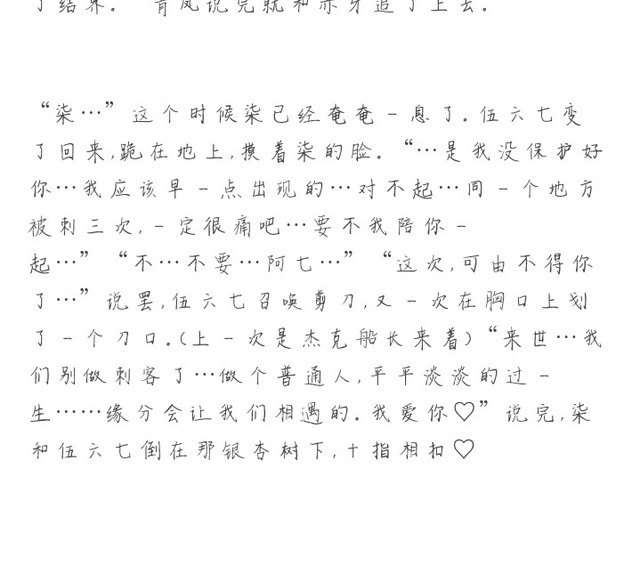 了结界。”青凤说完就和赤牙追了上去.
“柒…”这个时候柒已经奄奄一息了.伍六七变
了回来,跪在地上,摸着柒的脸。“…是我没保护好
你…我应该早一点出现的…对不起…同一个地方
被刺三次,一定很痛吧…要不我陪你一
起…”“不…不要…阿七…”“这次,可由不得你
了…”说罢,伍六七召唤剪刀,又一次在胸口上划
了一个刀口.(上一次是杰克船长来着)“来世…我
们别做刺客了…做个普通人,平平淡淡的过一
生……缘分会让我们相遇的.我爱你♡”说完,柒
和伍六七倒在那银杏树下,十指相扣♡